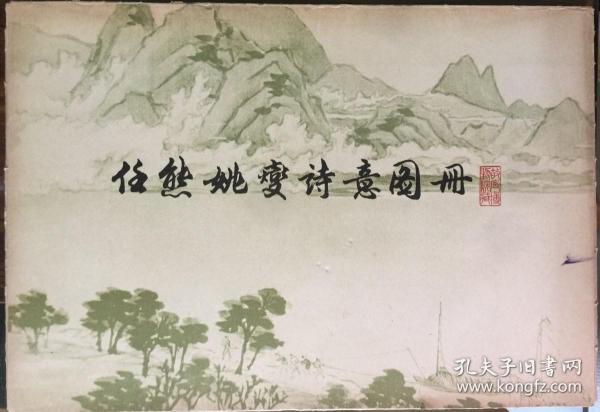 任熊姚燮詩意图冊
孔夫子旧书网
www.kongfz.com